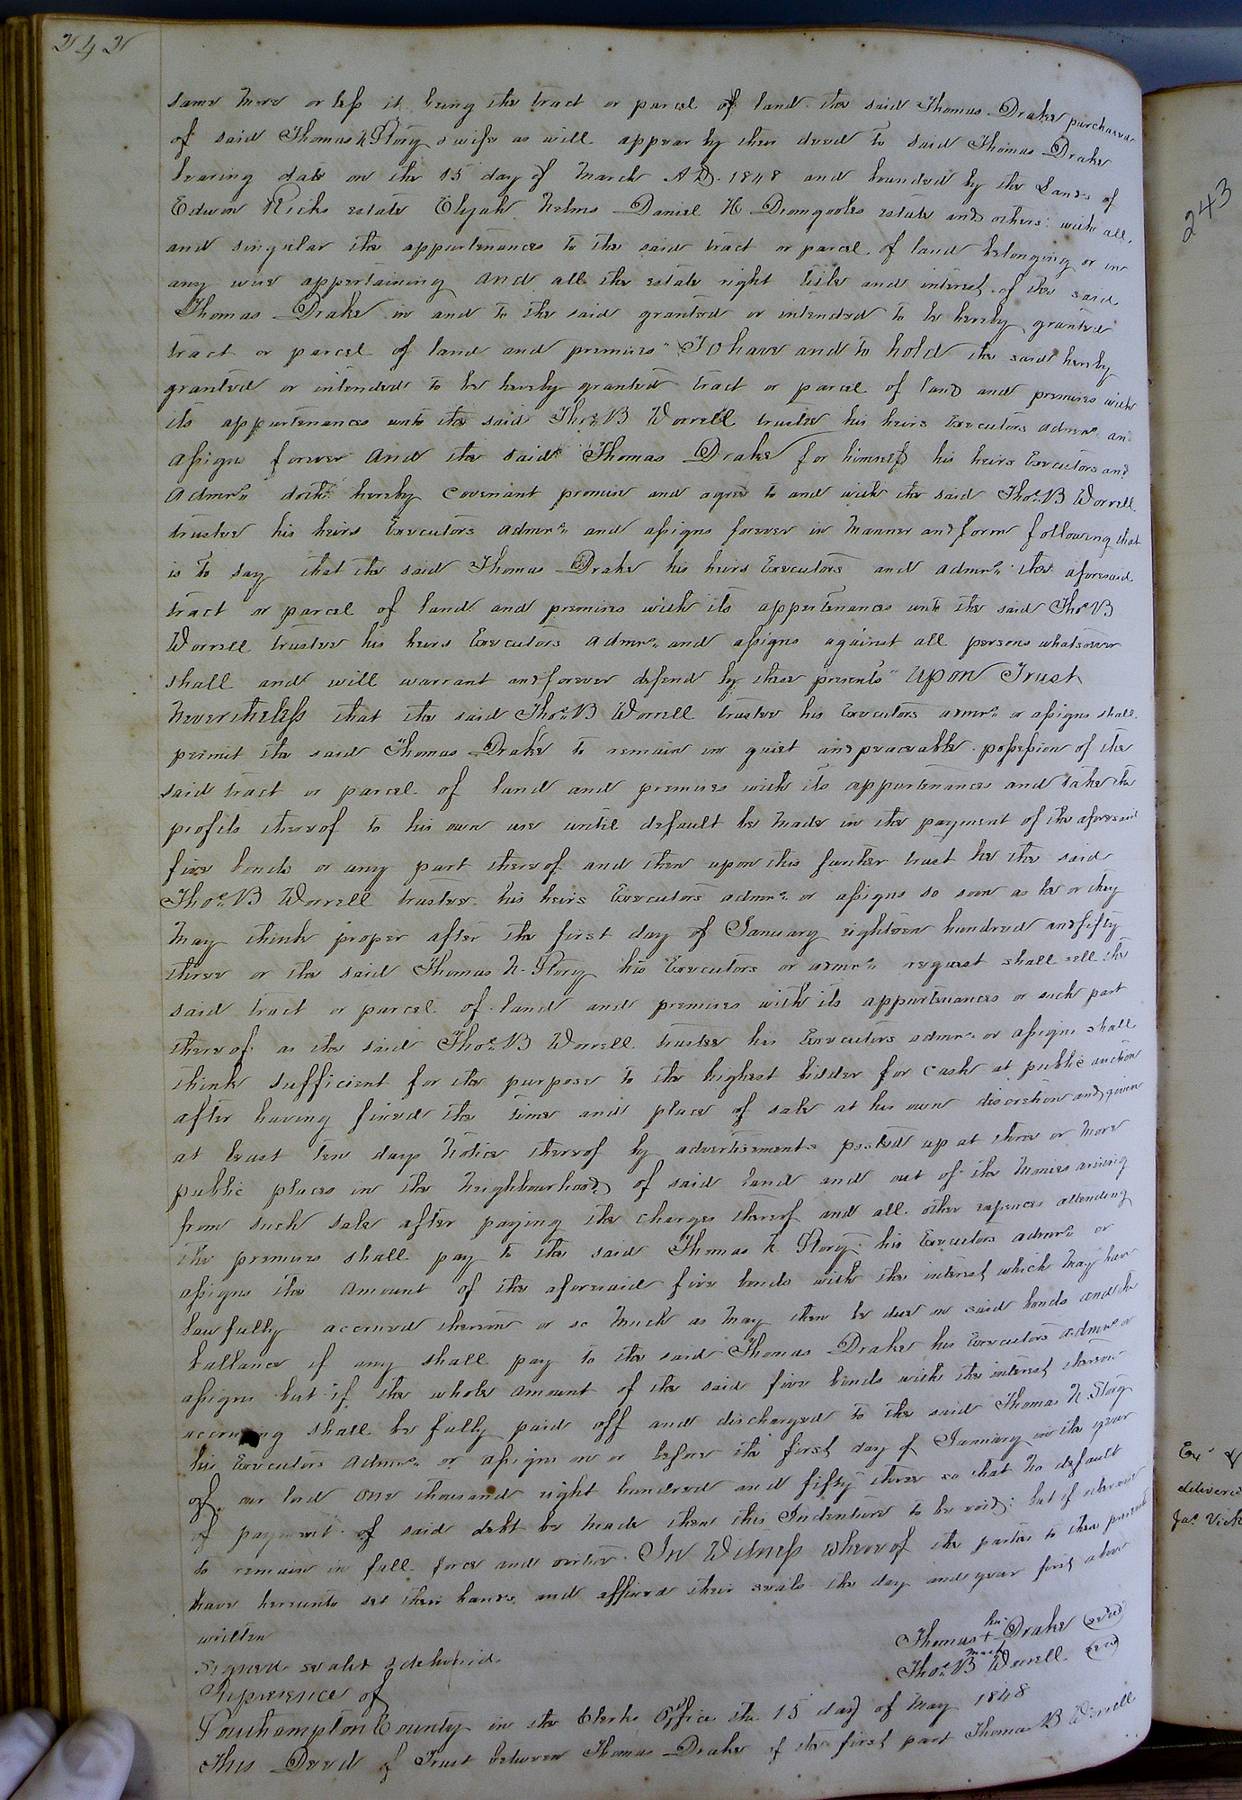 242
same more or less it being the tract or parcel of land the said Thomas Drake purchased
of said Thomas N Story & wife as will appear by their deed to said Thomas Drake
bearing date on the 15 day of March A D. 1848 and bounded by the Lands of
Edwin Ricks estate Elijah Nelms Daniel H Dromgooles estate and others with all
and singular the appurtenances to the said tract or parcel of land belonging or in
any wise appertaining and all the estate right title and interest of the said
Thomas Drake in and to the said granted or intended to be hereby granted
tract or parcel of land and premises" To have and to hold the said hereby
granted or intended to be hereby granted tract or parcel of land and premises with
its appurtenances unto the said Thos. B Worrell trustee his heirs Executors admrs. an
assigns forever and the said Thomas Drake for himself his heirs Executors and
admrs. doth hereby covenant promise and agree to and with the said Thos. B Worrell
trustee his heirs Executors admrs. and assigns forever in manner and form following that
is to say that the said Thomas Drake his heirs Executors and admrs. the aforesaid
tract or parcel of land and premises with its appurtenances unto the said Thos. B
Worrell trustee his heirs Executors admrs. and assigns against all persons whatsoever
shall and will warrant and forever defend by these presents" Upon Trust
Nevertheless that the said Thos. B Worrell trustee his Executors admrs. or assigns shall
permit the said Thomas Drake to remain in quiet and peaceable possession of the
said tract or parcel of land and premises with its appurtenances and take the
profits thereof to his own use until default be made in the payment of the aforesaid
five bonds or any part thereof and then upon this further trust he the said
Thos. B Worrell trustee his heirs Executors admrs. or assigns so soon as he or they
may think proper after the first day of January eighteen hundred and fifty
three or the said Thomas N. Story his Executors or admrs. request shall sell the
said tract or parcel of land and premises with its appurtenances or such part
thereof as the said Thos. B Worrell trustee his Executors admrs. or assigns shall
think sufficient for the purpose to the highest bidder for cash at public auction
after having fixed the time and place of sale at his own discretion and given
at least ten days notice thereof by advertisements posted up at three or more
public places in the neighbourhood of said land and out of the monies arising
from such sale after paying the charges thereof and all other expences attending
the premises shall pay to the said Thomas N. Story his Executors admrs. or
assigns the amount of the aforesaid five bonds with the interest which may have
lawfully accrued thereon or so much as may then be due on said bonds and the
ballance if any shall pay to the said Thomas Drake his Executors admrs. or
assigns but if the whole amount of the said five bonds with the interest thereon
accruing shall be fully paid off and discharged to the said Thomas N Story
his Executors admrs. or assigns on or before the first day of January in the year
of our lord one thousand eight hundred and fifty three so that no default
of payment of said debt be made then this Indenture to be void: but if otherwise
to remain in full force and virtue. In Witness whereof the parties to these presents
have hereunto set their hands and affixed their seals the day and year first above
written
Signed sealed & delivered
In presence of
Thomas his + mark Drake (seal)
Thos. B Worrell (seal)
Southampton County in the Clerks Office the 15 day of May 1848
This Deed of Trust between Thomas Drake of the first part Thomas B Worrell
243
delivered
Jas.